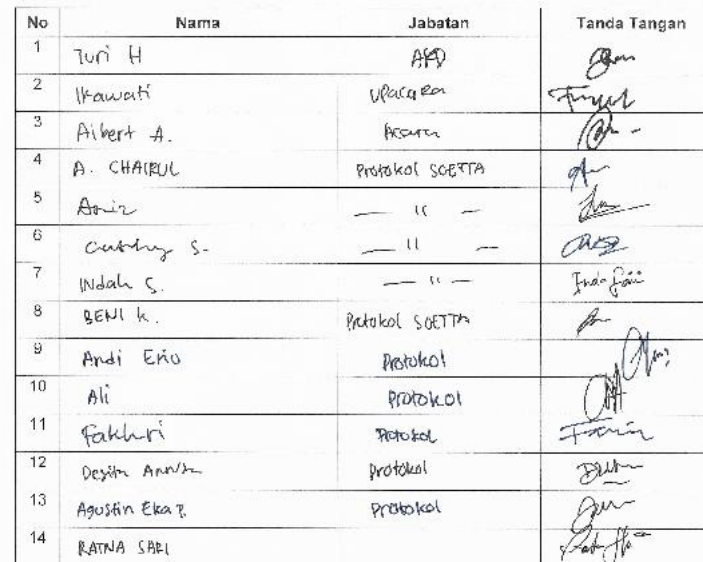 No Nama Jabatan Tanda Tangan
1 Turi H
2 Ikawati Upacara
3 Albert A. Acara
4 A. CHAIRUL Protokol SOETTA
5 — " —
6 S. — " —
7 Indah S. — " —
8 BENI K. Protokol SOETTA
9 Andi Erio Protokol
10 Ali Protokol
11 Fakhri Protokol
12 Protokol
13 Agustin Eka P. Protokol
14 RATNA SARI